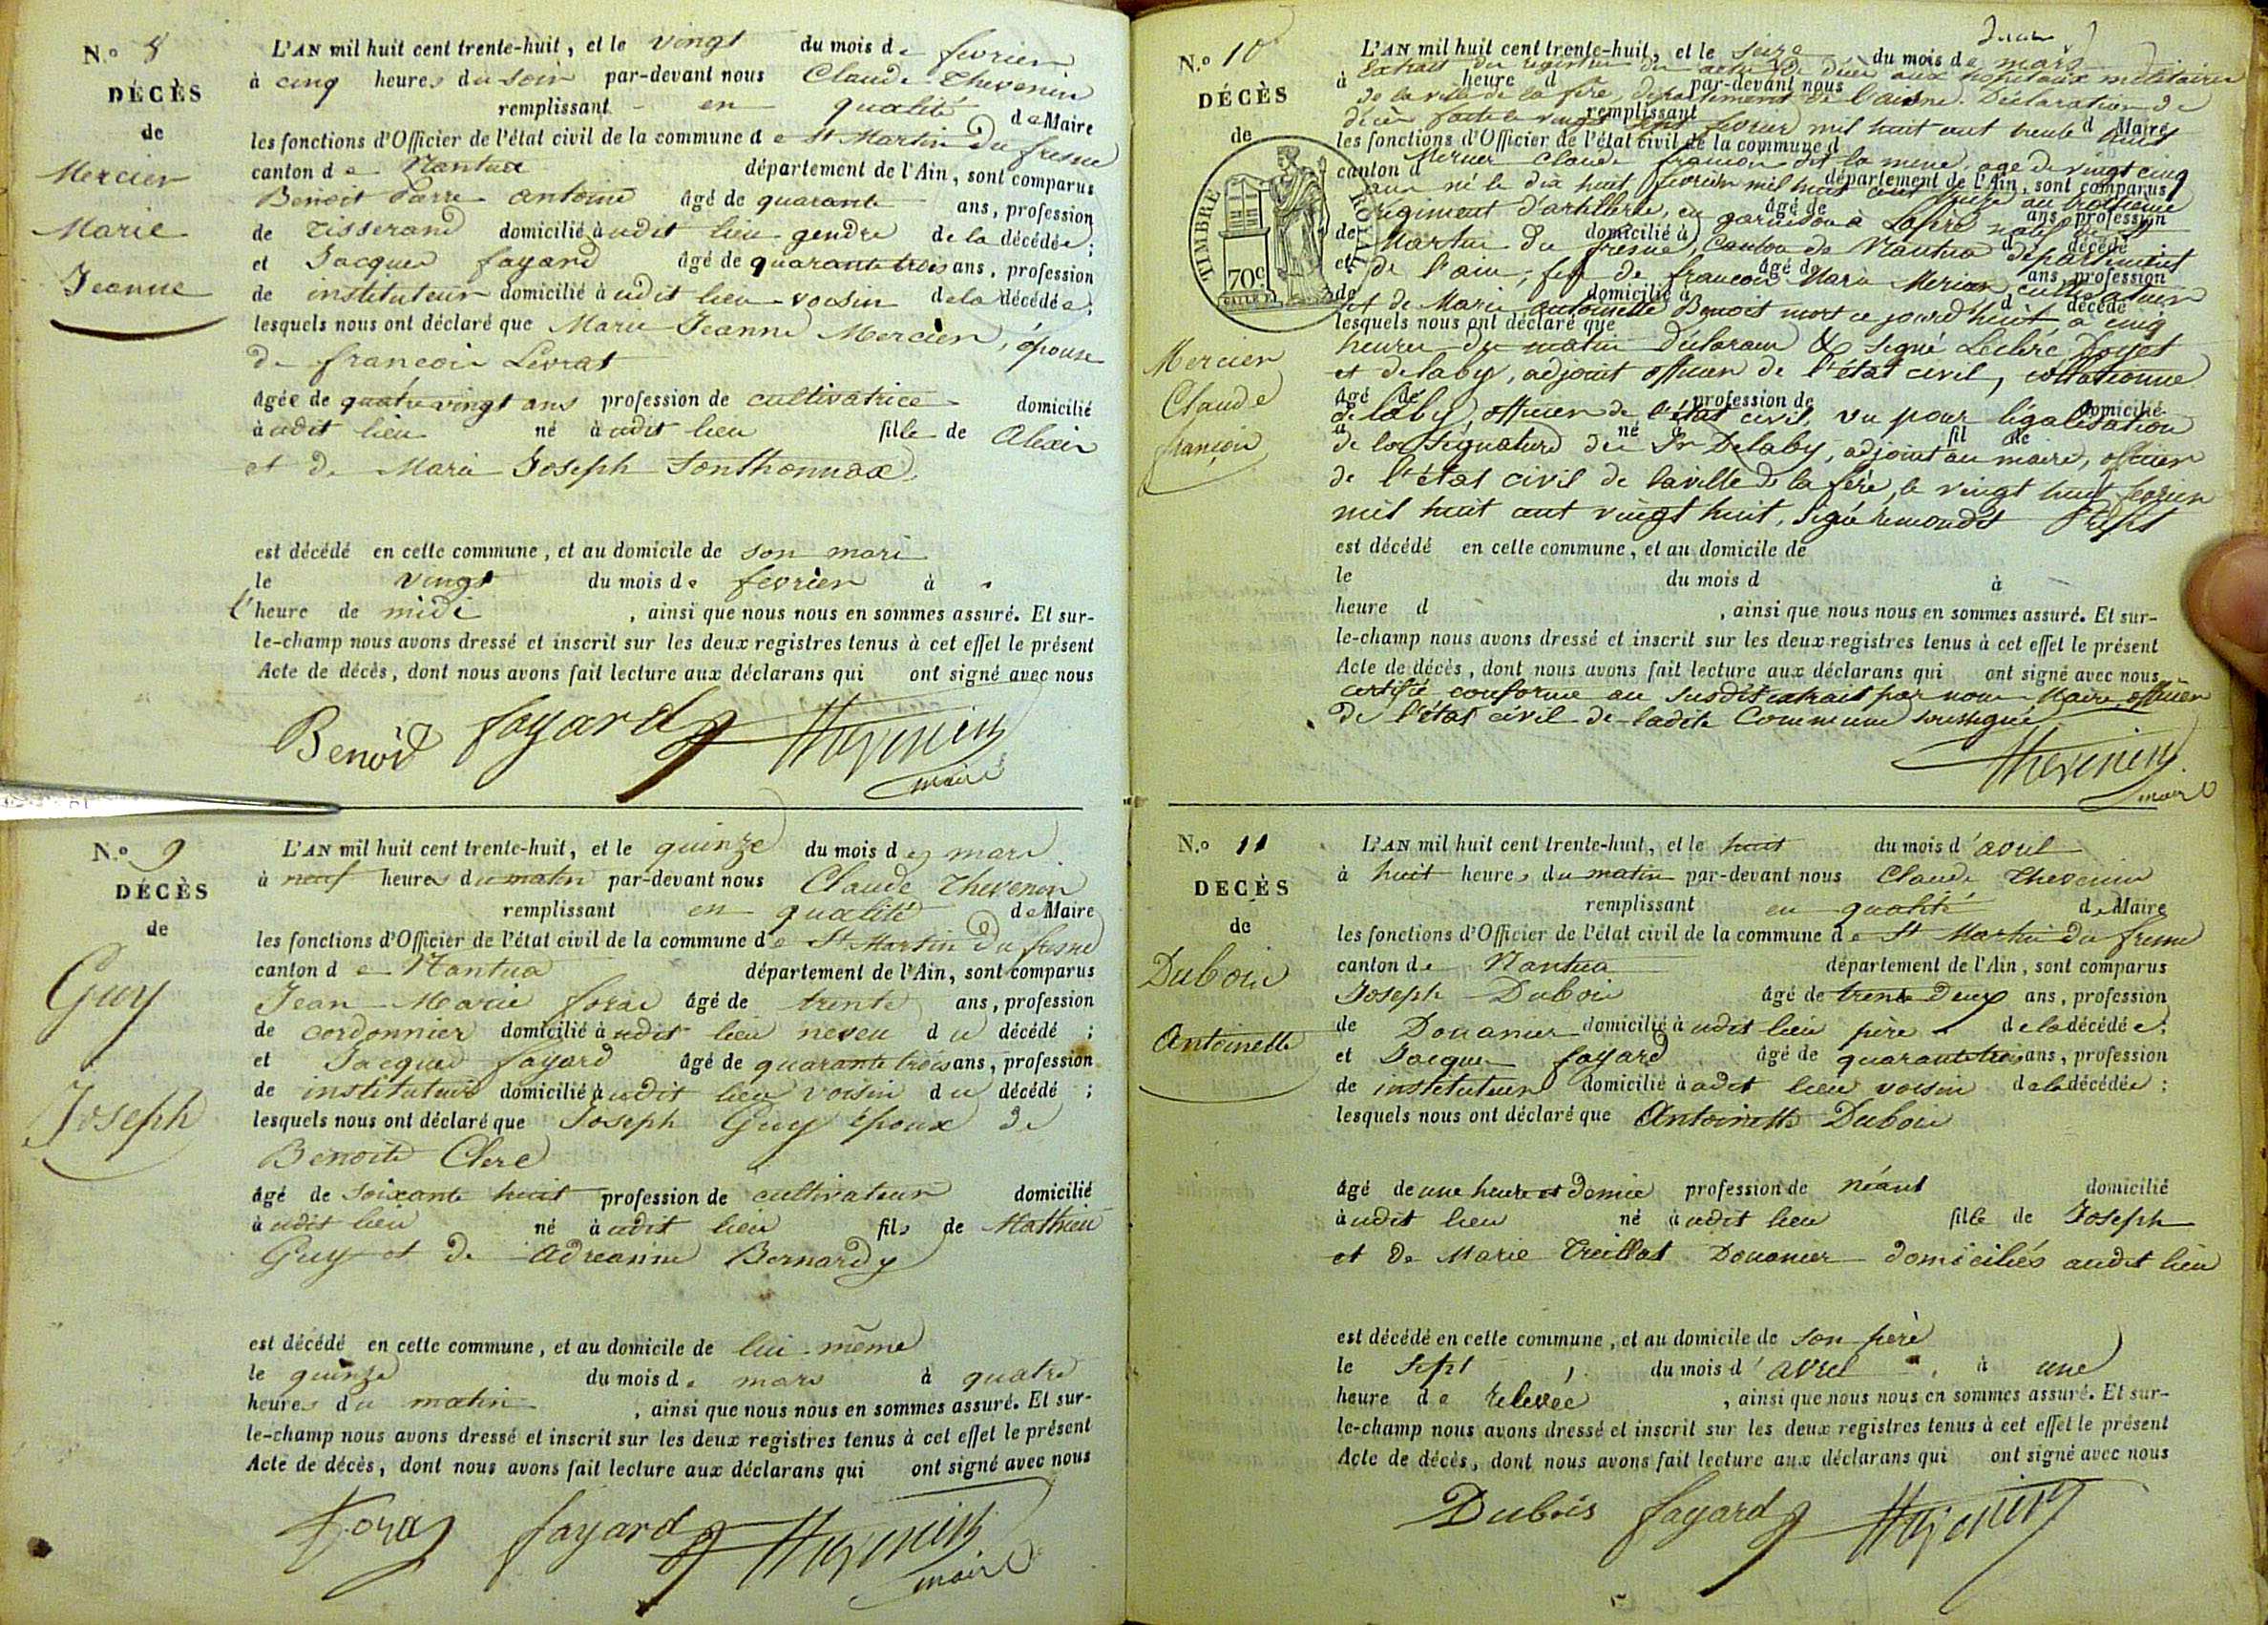 N.o 8
DÉCÈS
de
Mercier
Marie
Jeanne
L'AN mil huit cent trente-huit, et le vingt du mois de fevrier
à cinq heures du soir par-devant nous Claude Thevenin
remplissant en qualité de Maire
les fonctions d'Officier de l'état civil de la commune de St Martin du fresne
canton de Nantua département de l'Ain, sont comparus
Benoit Pierre antoine âgé de quarante ans, profession
de Tisserand domicilié à udit lieu gendre de la décédée;
et Jacques fayard âgé de quarante trois ans, profession
de instituteur domicilié à udit lieu voisin de la décédée;
lesquels nous ont déclaré que Marie Jeanne Mercier, épouse
de francois Livrat
âgée de quatre vingt ans profession de cultivatrice domicilié
à udit lieu né à udit lieu fille de Alexis
et de Marie Joseph Tonthonnax
est décédé en cette commune, et au domicile de son mari
le vingt du mois de fevrier à
l'heure de midi, ainsi que nous nous en sommes assuré. Et sur-
le-champ nous avons dressé et inscrit sur les deux registres tenus à cet effet le présent
Acte de décès, dont nous avons fait lecture aux déclarans qui ont signé avec nous
Benoit fayard Thevenin
maire
N.o 9
DÉCÈS
de
Guy
Joseph
L'AN mil huit cent trente-huit, et le quinze du mois de mars
à neuf heures du matin par-devant nous Claude Thevenin
remplissant en qualité de Maire
les fonctions d'Officier de l'état civil de la commune de St Martin du fresne
canton de Nantua département de l'Ain, sont comparus
Jean Marie foras âgé de trente ans, profession
de cordonnier domicilié à udit lieu neveu du décédé;
et Jacques fayard âgé de quarante trois ans, profession
de instituteur domicilié à udit lieu voisin du décédé;
lesquels nous ont déclaré que Joseph Guy époux de
Benoite Clerc
âgé de soixante huit profession de cultivateur domicilié
à udit lieu né à udit lieu fils de Mathieu
Guy et de adreanne Bernardy
est décédé en cette commune, et au domicile de lui même
le quinze du mois de mars à quatre
heures du matin, ainsi que nous nous en sommes assuré. Et sur-
le-champ nous avons dressé et inscrit sur les deux registres tenus à cet effet le présent
Acte de décès, dont nous avons fait lecture aux déclarans qui ont signé avec nous
foras fayard Thevenin
maire
N.o 10
DÉCÈS
de
TIMBRE ROYAL
70c
Mercier
Claude
françois
L'AN mil huit cent trente-huit, et le seize du mois de mars
à heure d par-devant nous
Extrait du registre des actes de décès aux hopitaux militaires
de la ville de la fère, departement de l'aisne. Déclaration de
remplissant d Maire
décès faite le vingt sept fevrier mil huit cent trente huit
les fonctions d'Officier de l'état civil de la commune d
Mercier Claude francois dit la mene, agé de vingt cinq
canton d département de l'Ain, sont comparus
ans né le dix huit fevrier mil huit cent treize au troisieme
âgé de ans, profession
régiment d'artillerie, en garnison à Lafère natif de St
de domicilié à d décédé;
Martin du fresne, canton de Nantua departement
et âgé de ans, profession
de l'ain, fils de francois Marie Mercier cultivateur
de domicilié à d décédé
et de Marie antoinette Benoit mort ce jourd'huit à cinq
lesquels nous ont déclaré que
heures du matin déclarans & signé Leclerc Doyet
et delaby, adjoint officier de l'état civil, collationné
âgé de profession de domicilié
delaby, officier de l'état civil, vu pour légalisation
à né à fil de
de la signature du Sr Delaby, adjoint au maire, officier
de l'état civil de la ville de la fère, le vingt huit fevrier
mil huit cent vingt huit, signé
est décédé en cette commune, et au domicile de
le du mois d à
heure d, ainsi que nous nous en sommes assuré. Et sur-
le-champ nous avons dressé et inscrit sur les deux registres tenus à cet effet le présent
Acte de décès, dont nous avons fait lecture aux déclarans qui ont signé avec nous
certifié conforme au susdit extrait par nous Maire officier
de l'état civil de ladite Commune soussigné
Thevenin
maire
N.o 11
DECÈS
de
Dubois
Antoinette
L'AN mil huit cent trente-huit, et le huit du mois d'avril
à huit heures du matin par-devant nous Claude Thevenin
remplissant en qualité de Maire
les fonctions d'Officier de l'état civil de la commune de St Martin du fresne
canton de Nantua département de l'Ain, sont comparus
Joseph Dubois âgé de trente deux ans, profession
de Douanier domicilié à udit lieu père de la décédée;
et Jacques fayard âgé de quarante trois ans, profession
de instituteur domicilié à udit lieu voisin de la décédée;
lesquels nous ont déclaré que Antoinette Dubois
âgé de une heure et demie profession de néant domicilié
à udit lieu né à udit lieu fille de Joseph
et de Marie Treillat Douanier domiciliés audit lieu
est décédé en cette commune, et au domicile de son père
le sept du mois d'avril à une
heure de relevée, ainsi que nous nous en sommes assuré. Et sur-
le-champ nous avons dressé et inscrit sur les deux registres tenus à cet effet le présent
Acte de décès, dont nous avons fait lecture aux déclarans qui ont signé avec nous
Dubois fayard Thevenin